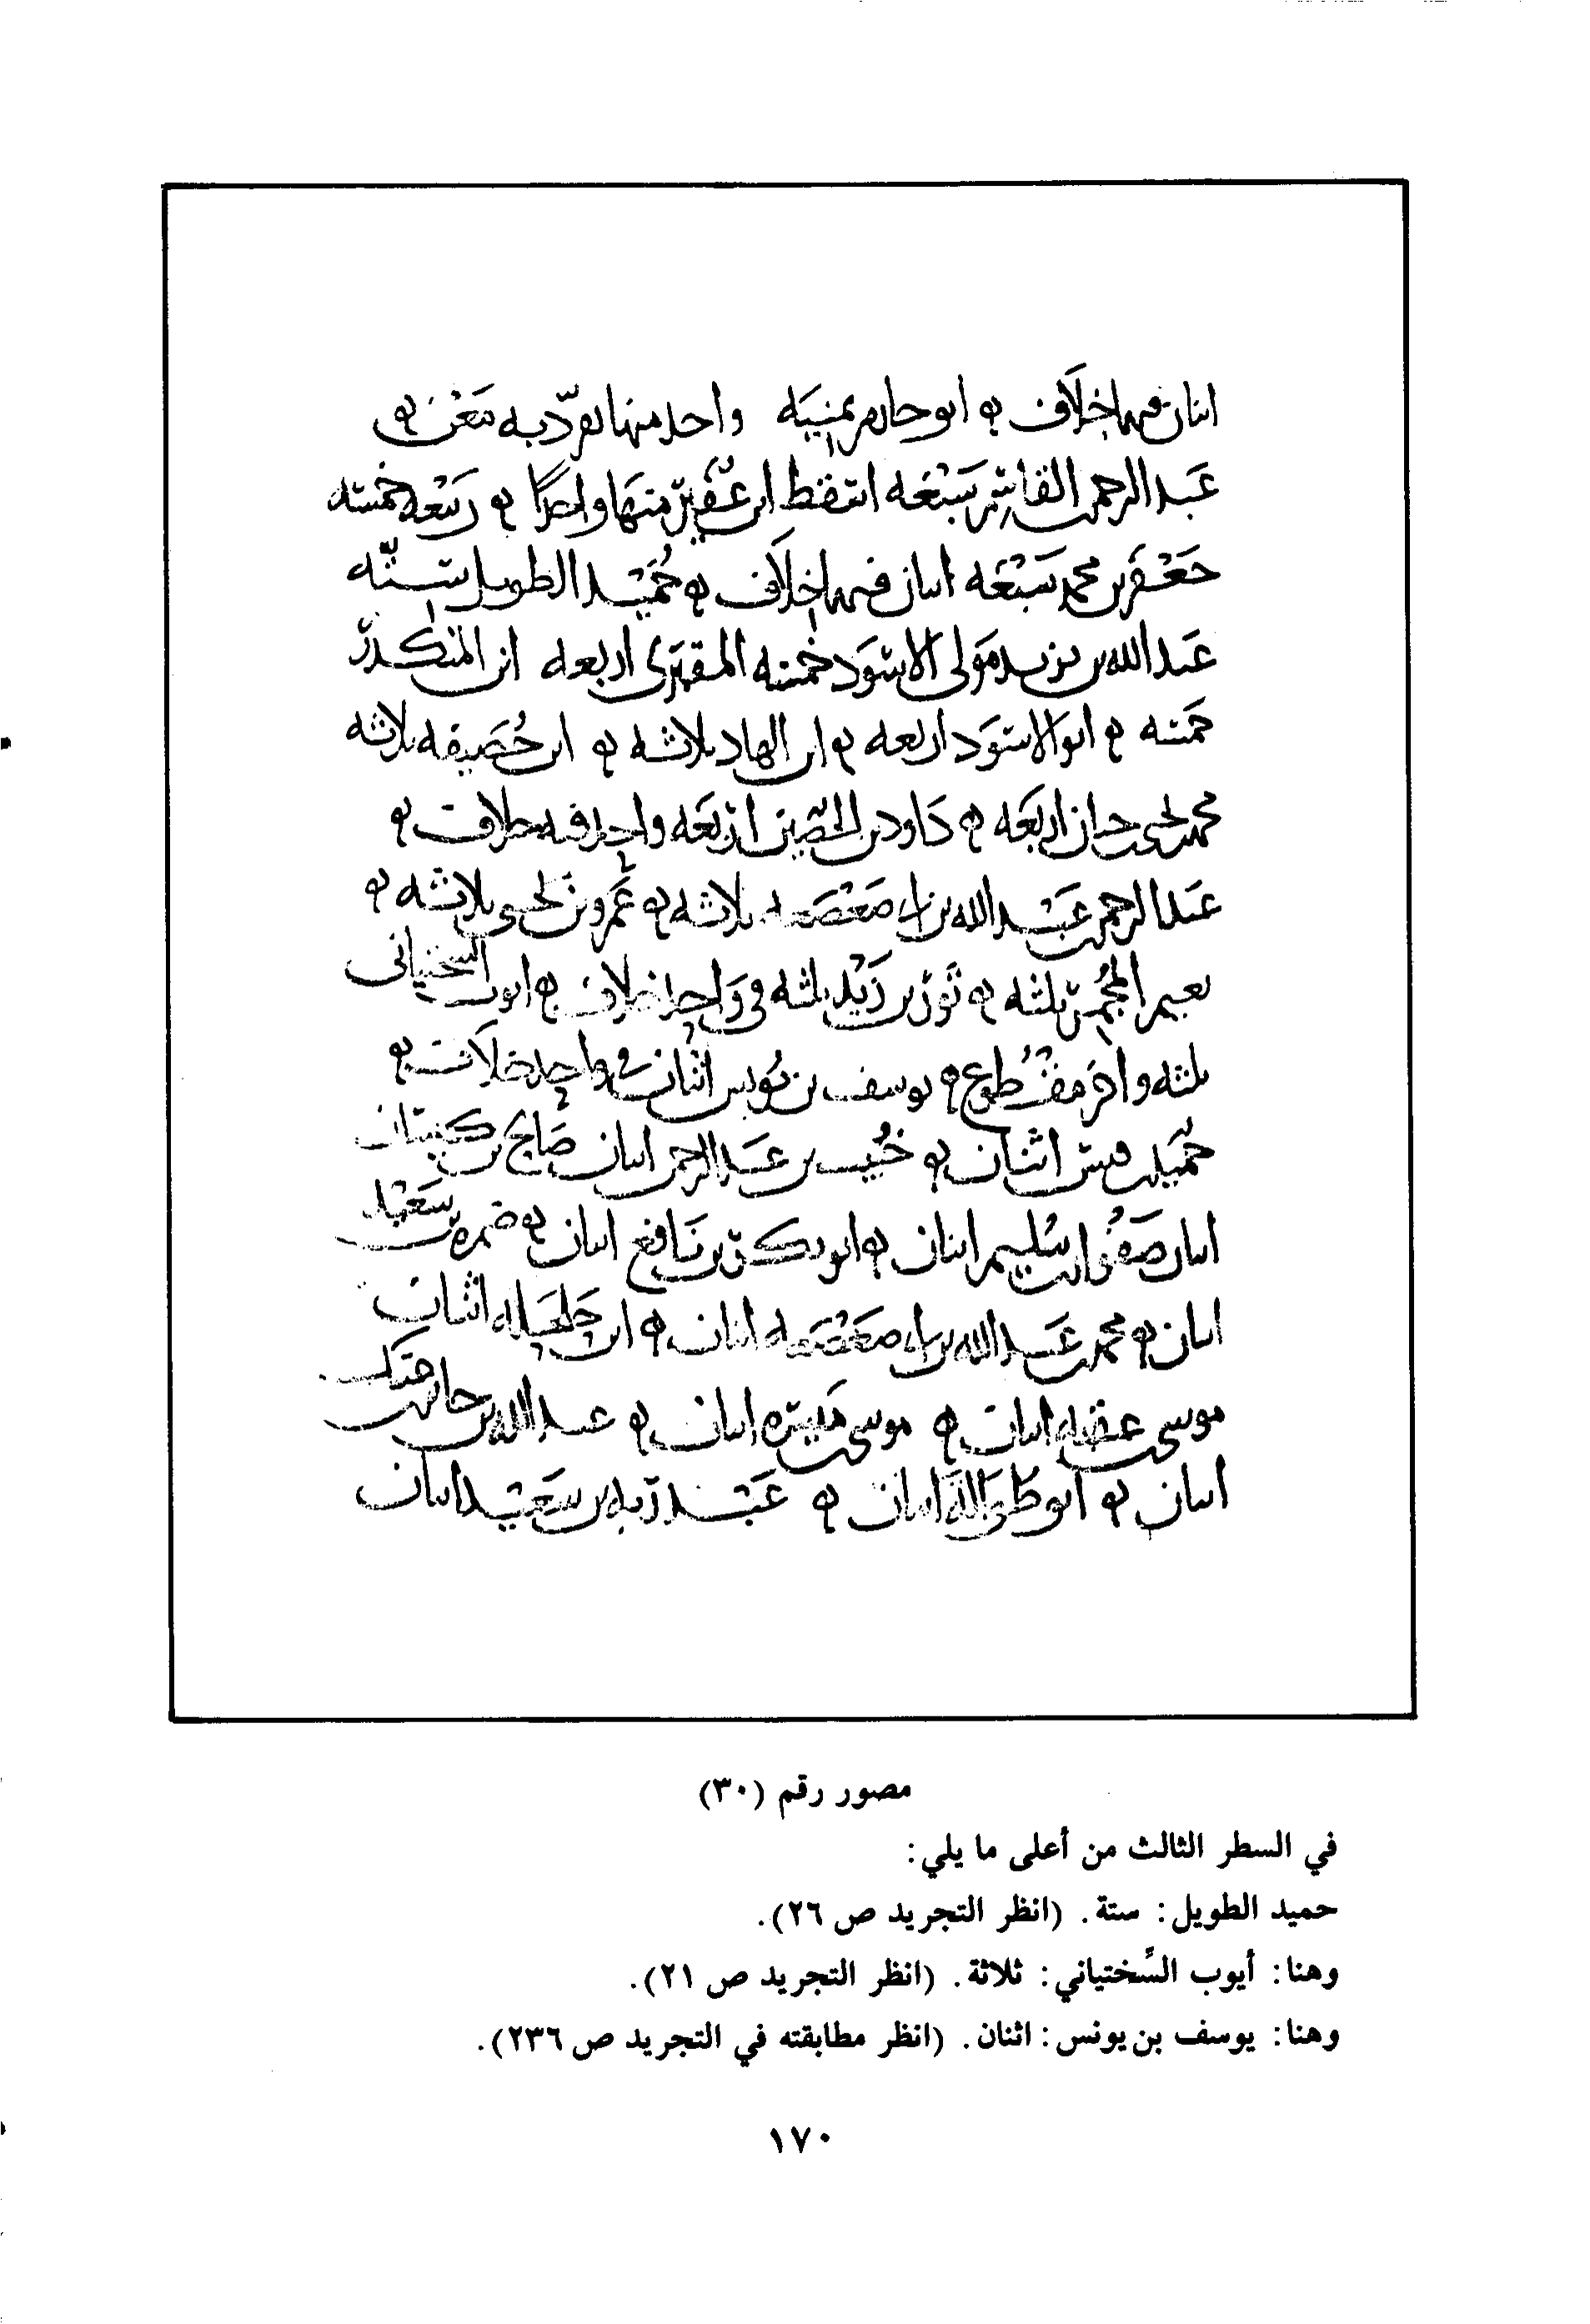 اثنان فيهما اختلاف ابو حازم ثمنيه واحد منها تفرد به معن
عبد الرحمن القاسم سبعه اسقط ابن عفير منها واحدا ربيعه خمسه
جعفر بن محمد سبعه اثنان فيهما اختلاف حُميد الطويل ستّه
عبد الله بن يزيد مولى الاسود خمسه المقبري اربعه ابن المنكدر
خمسه ابو الاسود اربعه ابن الهاد ثلاثه ابن خُصيفه ثلاثه
محمد يحيى حبان اربعه داود بن الحصين اربعه واحد فيه خلاف
عبد الرحمن عبد الله بن ابي صعصعه ثلاثه عمرو بن يحيى ثلاثه
نعيم المُجمِر ثلثه ثور بن زيد ثلثه في واحد خلاف ايوب السختياني
ثلثه واخر مقطوع يوسف بن يونس اثنان في واحد خلاف
حُميد قيس اثنان خُبيب بن عبد الرحمن اثنان صالح بن كيسان
اثنان صفوان سُليم اثنان ابو بكر بن نافع اثنان ضمره بن سعيد
اثنان محمد عبد الله بن ابي صعصعه اثنان ابن حلحله اثنان
موسى عقبه اثنان موسى ميسره اثنان عبد الله بن جابر عتيك
اثنان ابو طواله اثنان عبد ربه بن سعيد اثنان
مصور رقم (٣٠)
في السطر الثالث من أعلى ما يلي:
حميد الطويل: ستة. (انظر التجريد ص ٢٦).
وهنا: أيوب السِّختياني: ثلاثة. (انظر التجريد ص ٢١).
وهنا: يوسف بن يونس: اثنان. (انظر مطابقته في التجريد ص ٢٣٦).
١٧٠